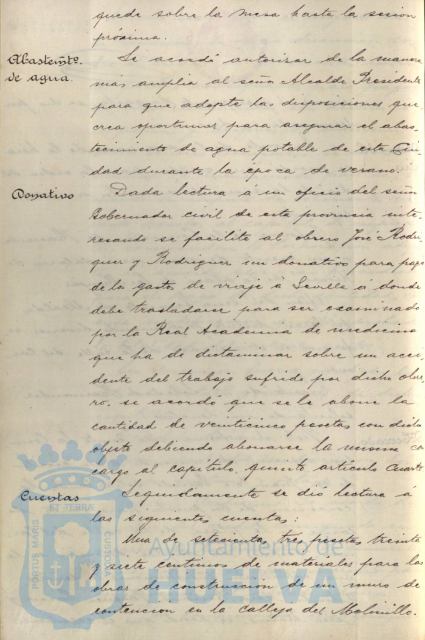 quede sobre la mesa hasta la sesion
próxima.
Abastemto. de agua.
Se acordó autorizar de la manera
mas amplia al señor Alcalde Presidente
para que adopte las disposiciones que
crea oportunas para asegurar el abas-
tecimiento de agua potable de esta Ciu-
dad durante la época de verano.
Donativo
Dada lectura á un oficio del señor
Gobernador civil de esta provincia inte-
resando se facilite al obrero José Rodri-
guez y Rodriguez un donativo para pago
de los gastos de viaje á Sevilla a donde
debe trasladarse para ser examinado
por la Real Academia de medicina
que ha de dictaminar sobre un acci-
dente del trabajo sufrido por dicho obre-
ro, se acordó que se le abone la
cantidad de veinticinco pesetas con dicho
objeto debiendo abonarse la misma con
cargo al capítulo quinto artículo cuarto
Cuentas
Seguidamente se dió lectura á
las siguientes cuentas:
Una de setecientas tres pesetas treinta
y siete centimos de materiales para las
obras de construcción de un muro de
contencion en la calleja del Molinillo.
PORTUS MARIS
ET TERRAE
CUSTODIA
Ayuntamiento de
HUELVA